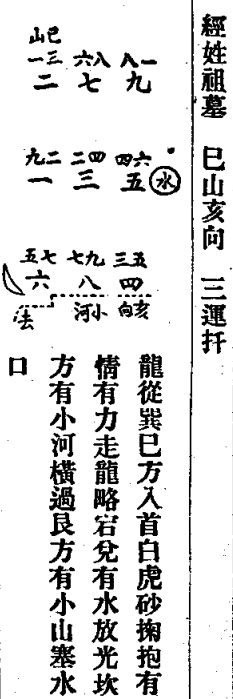 經姓祖墓　巳山亥向　三運扞
山巳
一三　六八　八一
二　七　九
九二　二四　四六
一　三　五　水
五七　七九　三五
六　八　四
河小　向亥
龍從巽巳方入首白虎砂掬抱有
情有力走龍略宕兌有水放光坎
方有小河橫過艮方有小山塞水
口